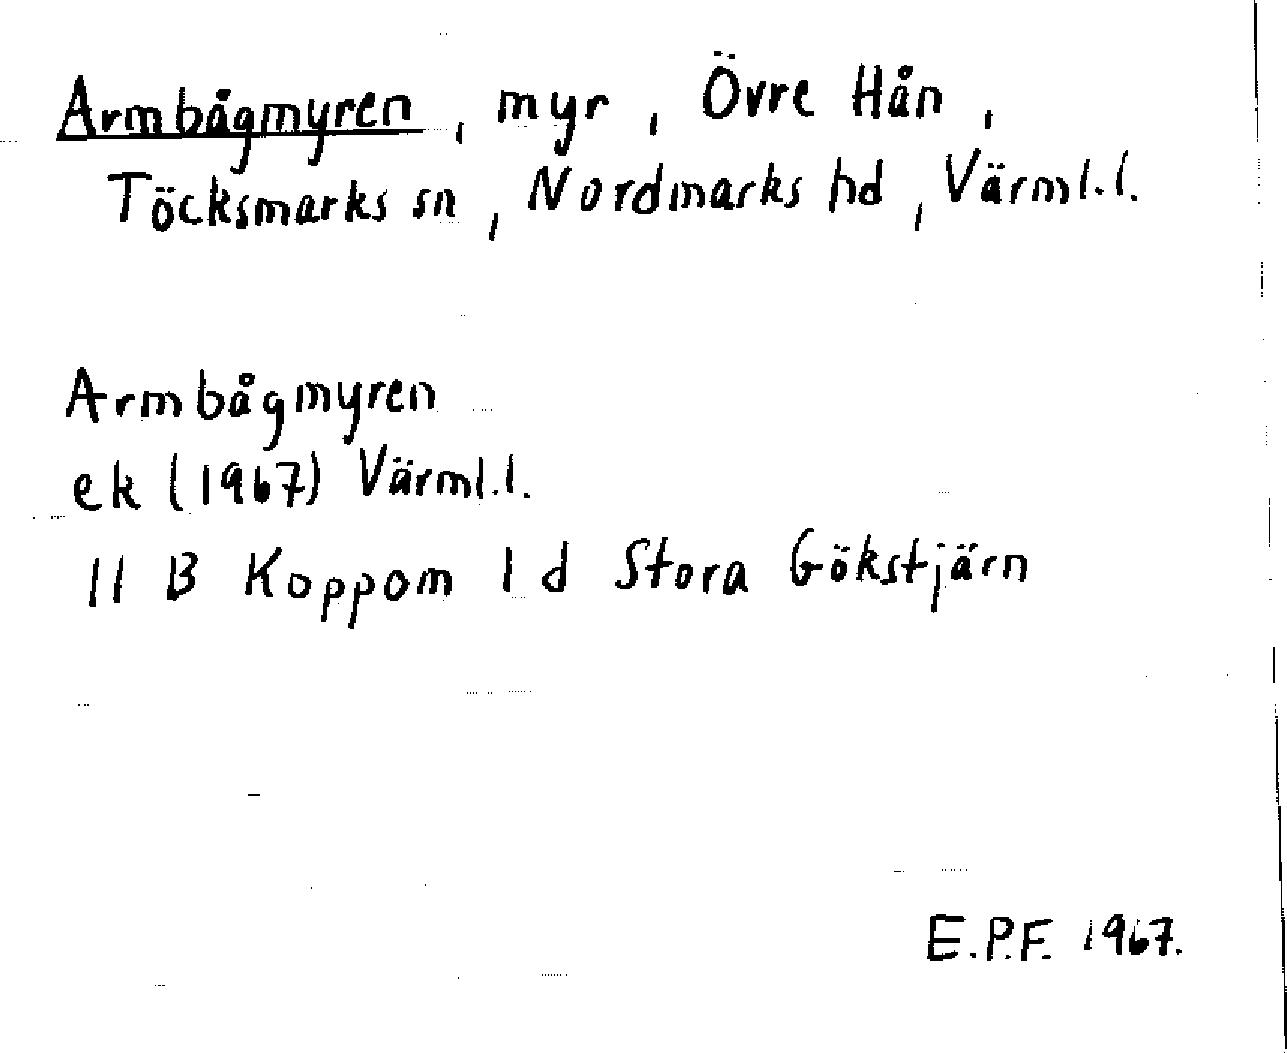 Armbågmyren, myr, Övre Hån,
Töcksmarks sn, Nordmarks hd, Värml.l.
Armbågmyren
ek (1967) Värml.l.
11 B Koppom 1 d Stora Gökstjärn
E.P.F. 1967.